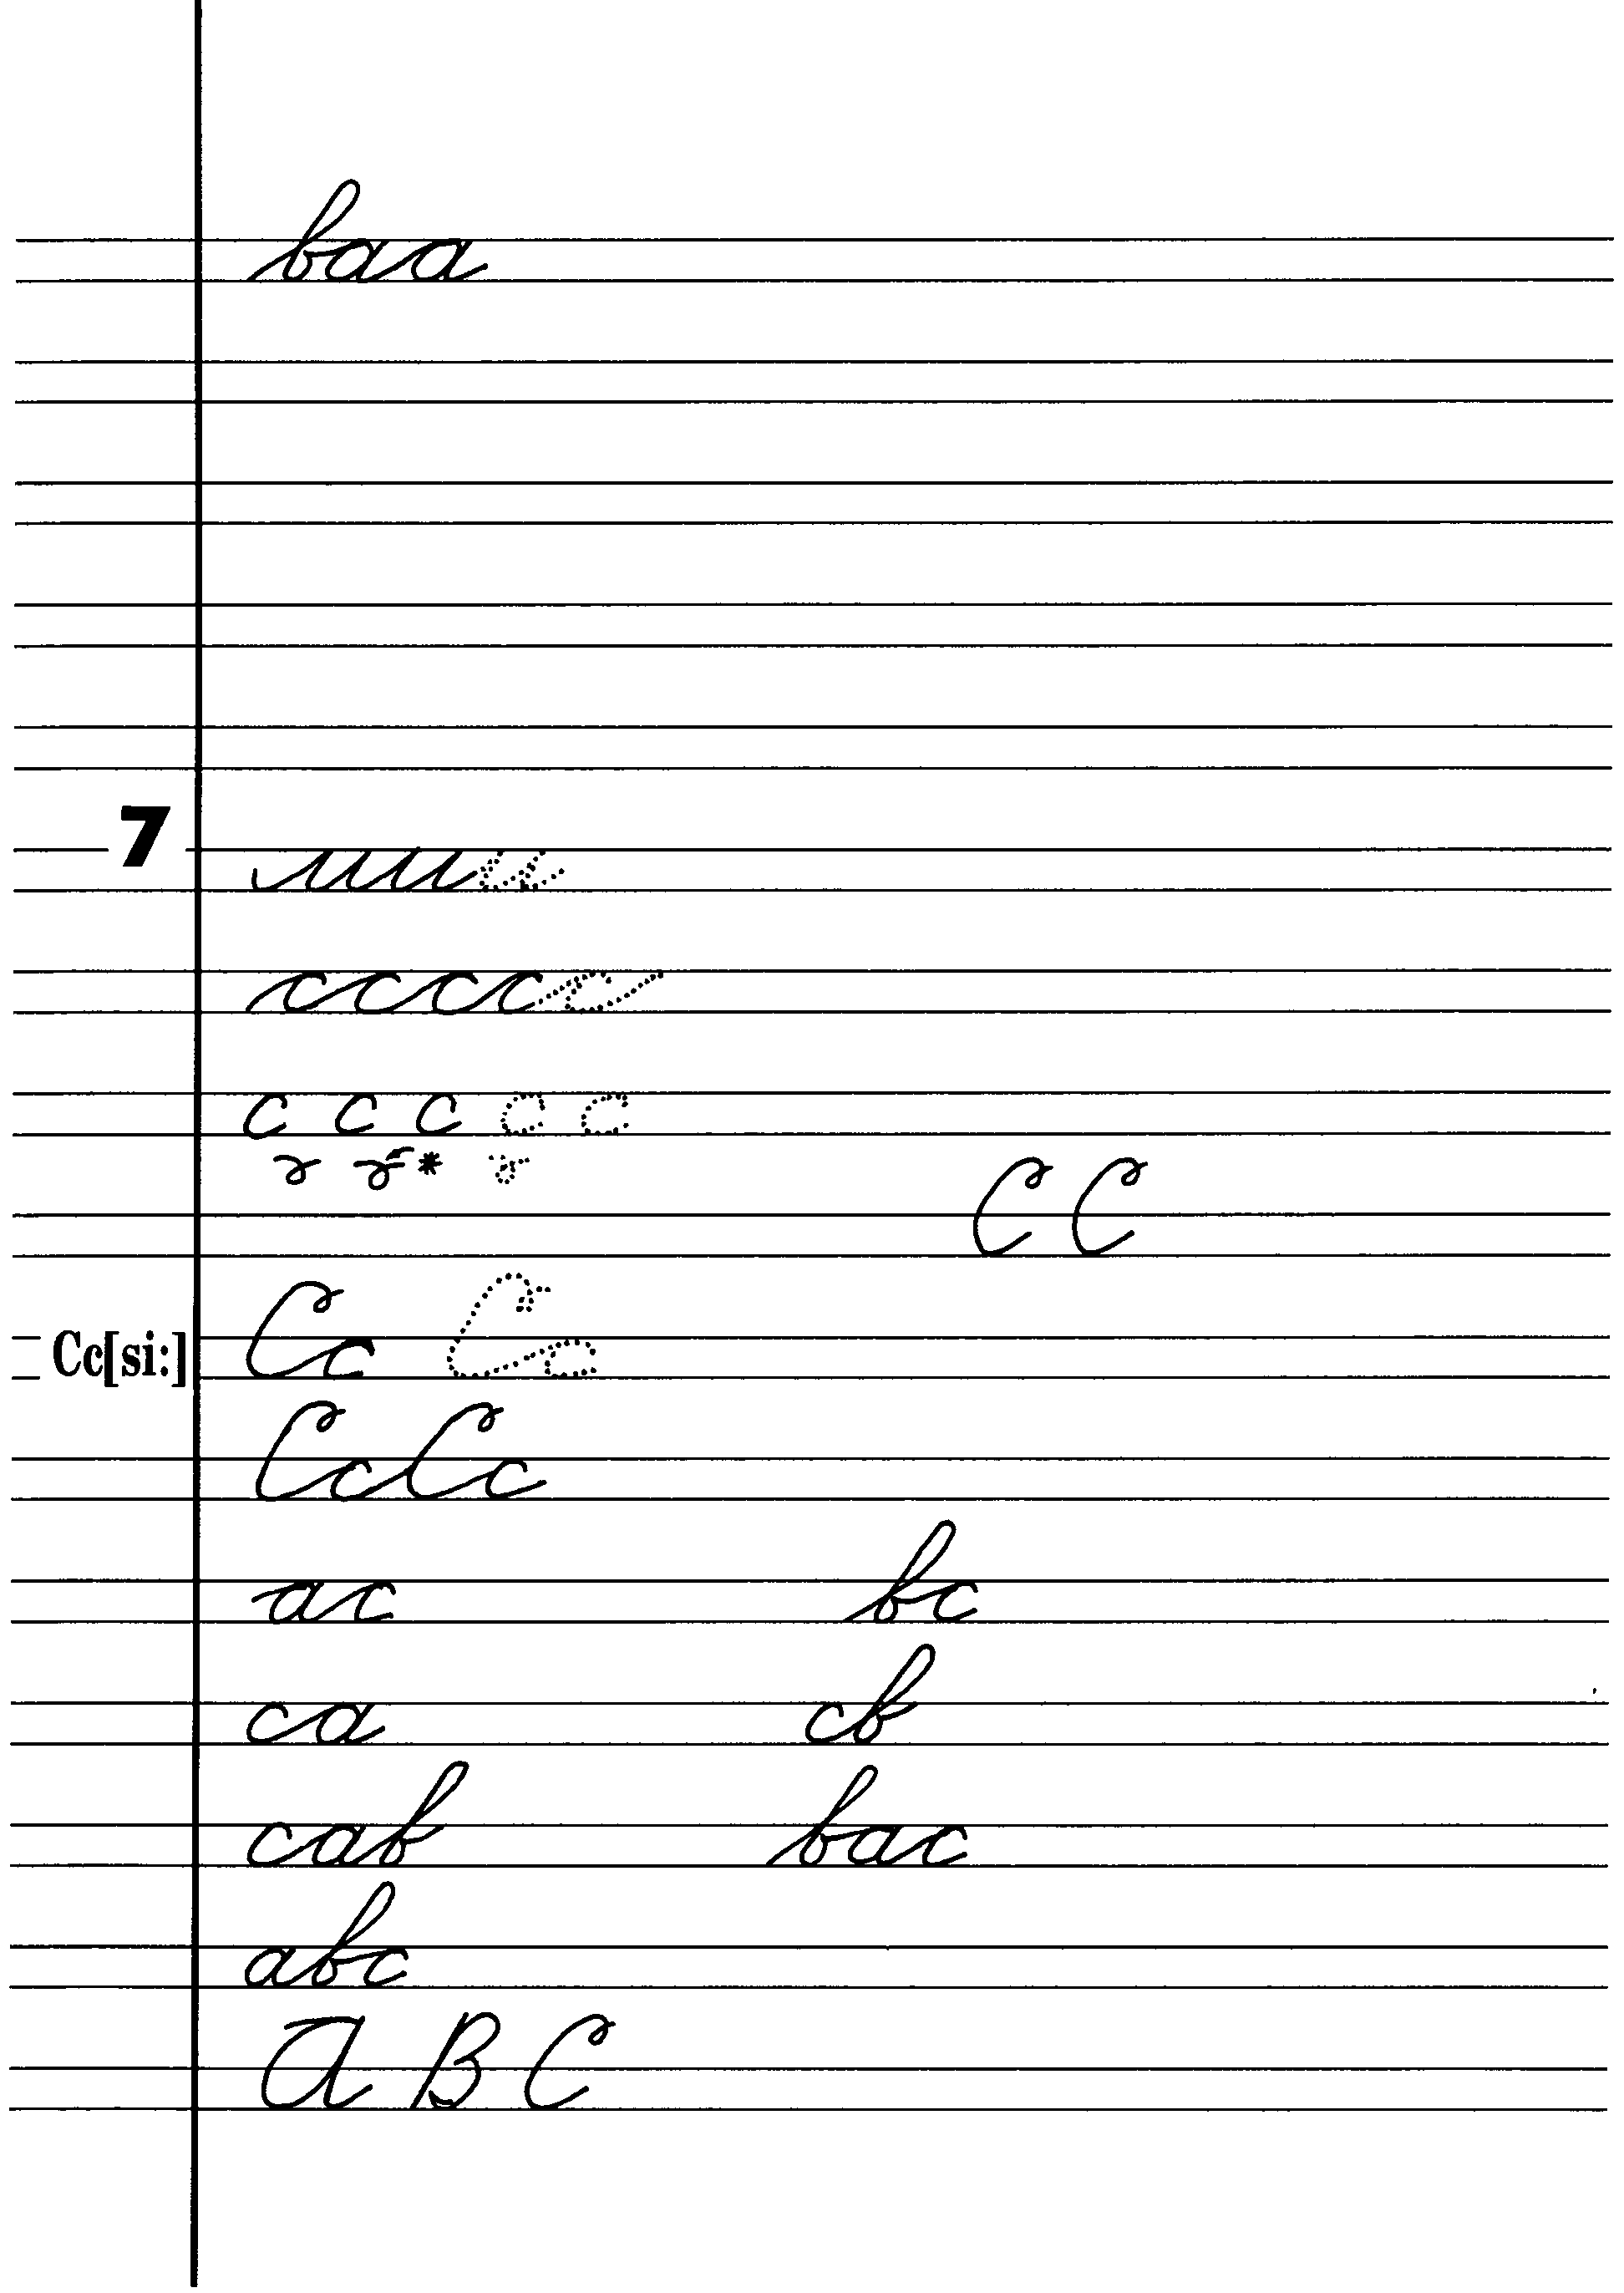 baa
7
cccc
c c c c c
C C
Cc[si:] Cc Cc
CcCc
ac bc
ca cb
cab bac
abc
A B C